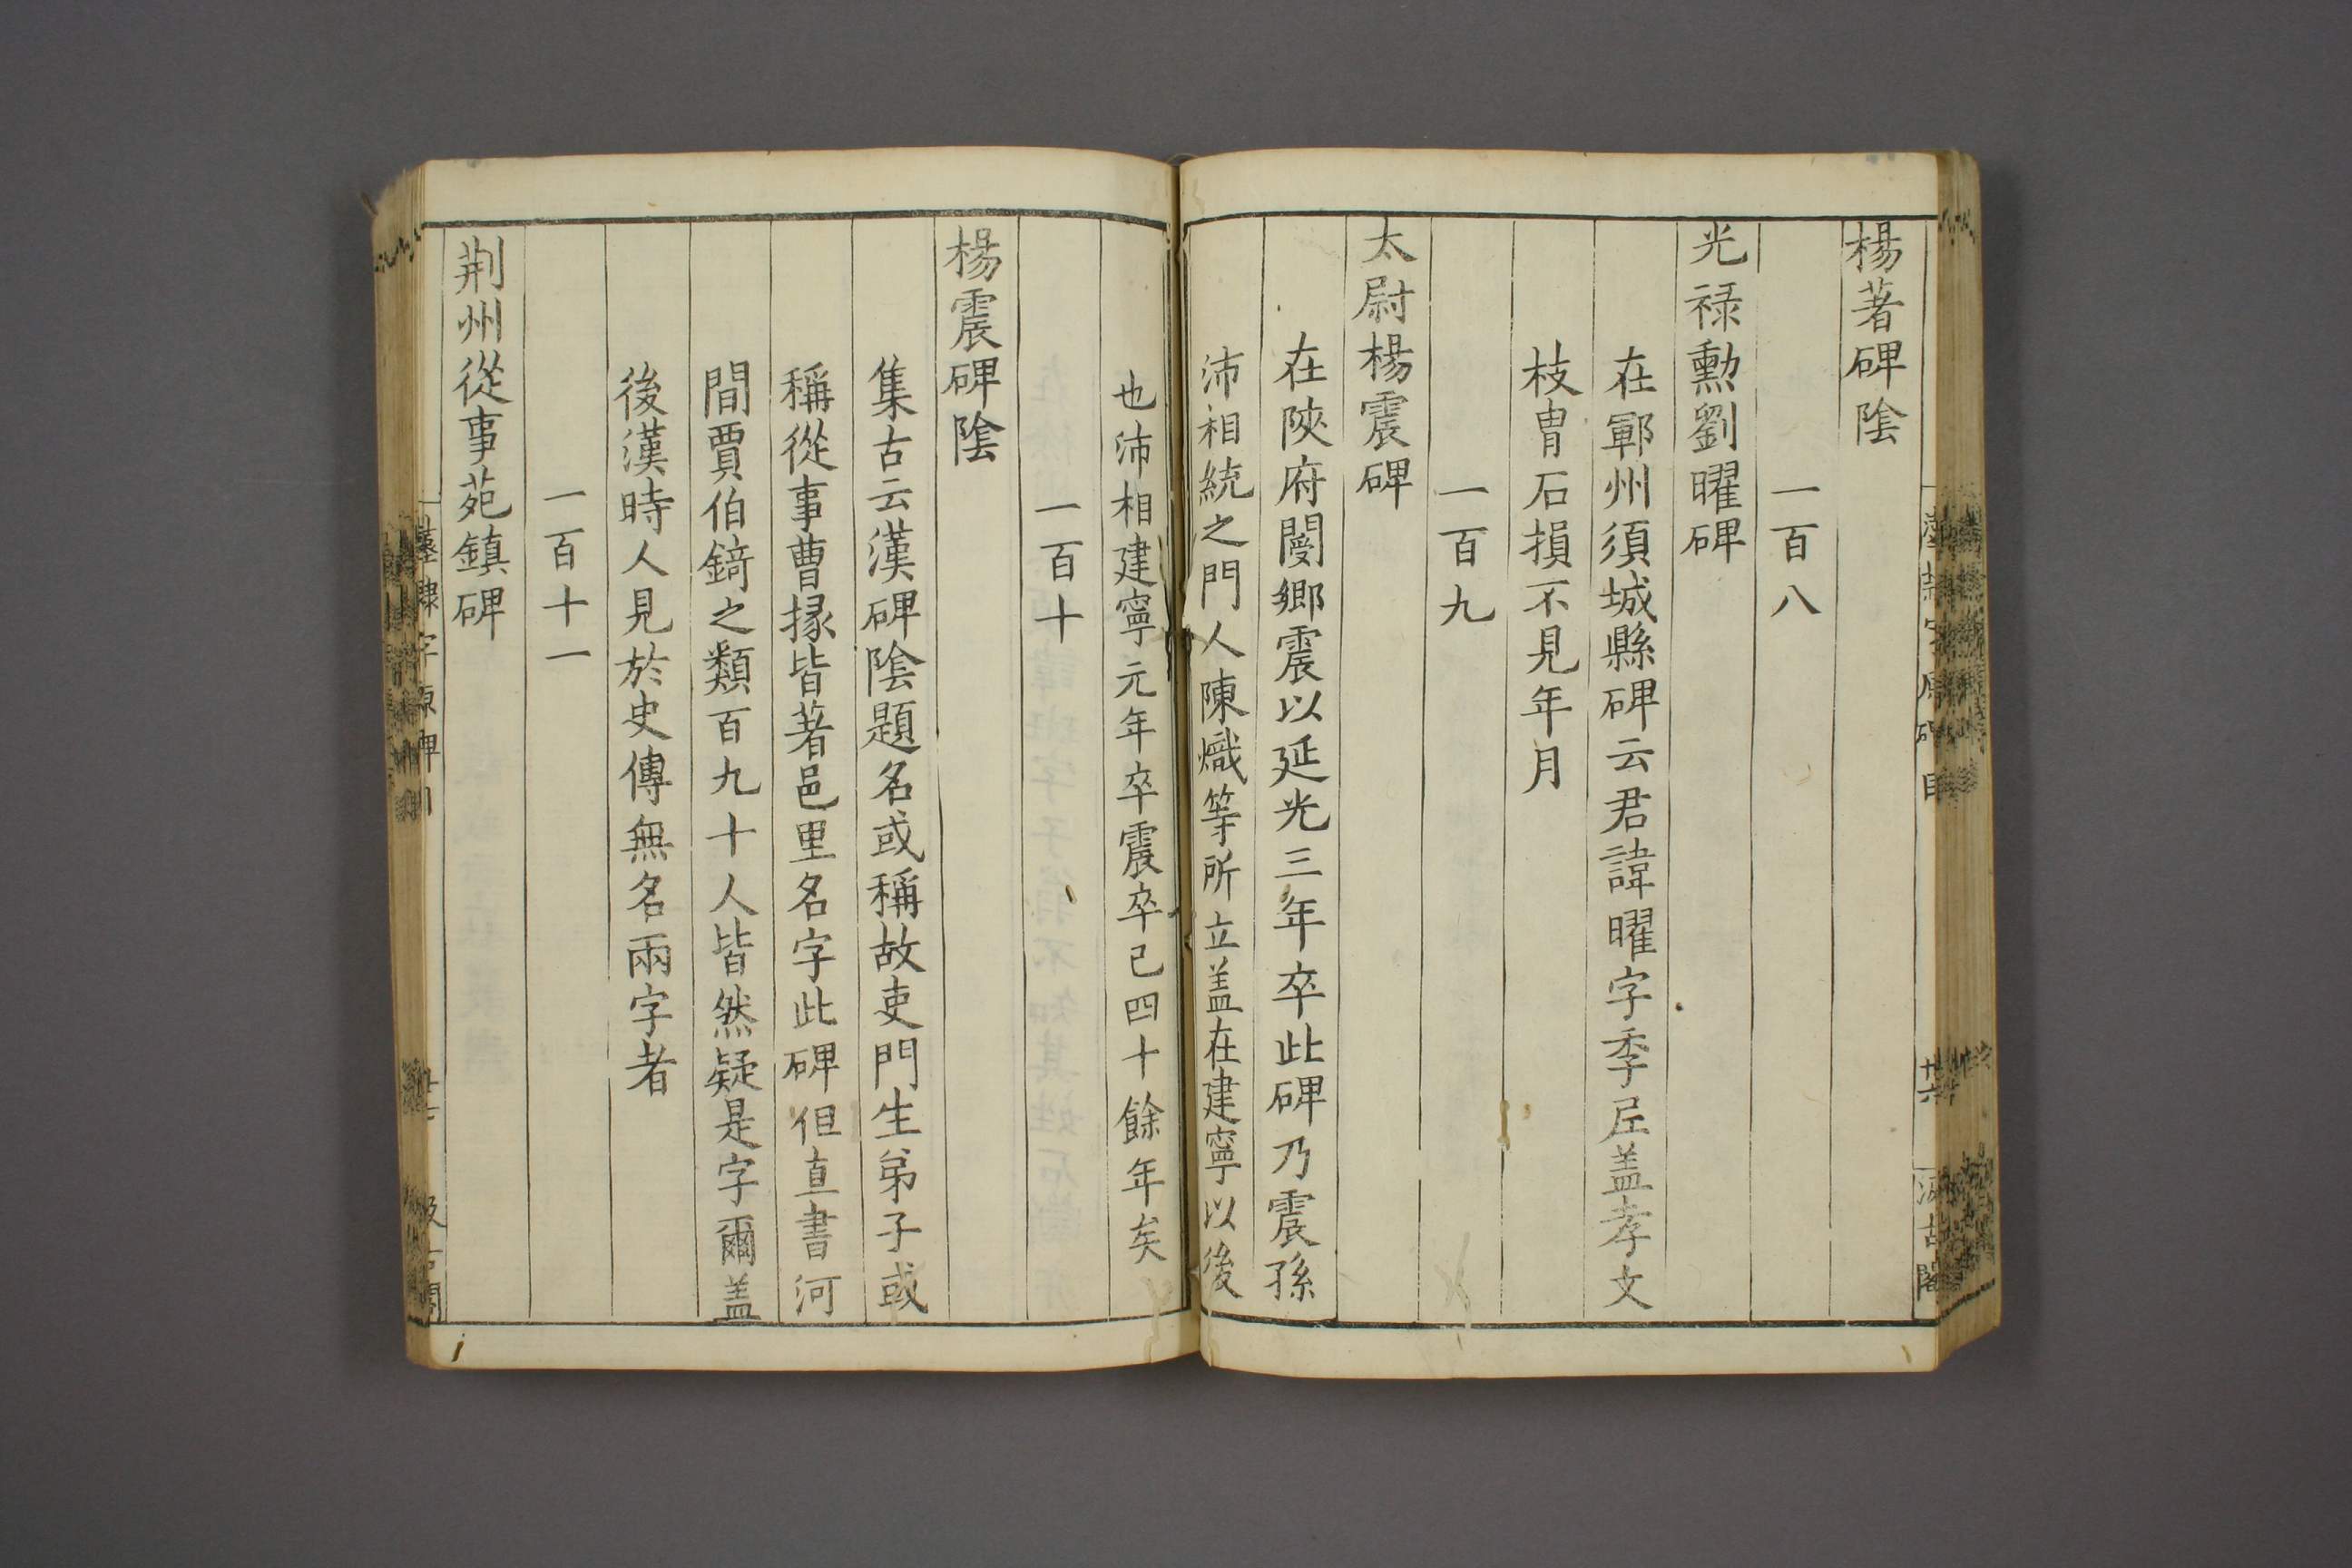 楊著碑陰
一百八
光禄勳劉曜碑
在鄆州須城縣碑云君諱曜字季𡰥盖孝文
枝胄石損不見年月
一百九
太尉楊震碑
在陝府閿鄉震以延光三年卒此碑乃震孫
沛相統之門人陳熾等所立盖在建寧以後
也沛相建寧元年卒震卒已四十餘年矣
一百十
楊震碑陰
集古云漢碑陰題名或稱故吏門生弟子或
稱從事曹掾皆著邑里名字此碑但直書河
間賈伯錡之類百九十人皆然疑是字爾盖
後漢時人見於史傳無名兩字者
一百十一
荆州從事苑鎮碑